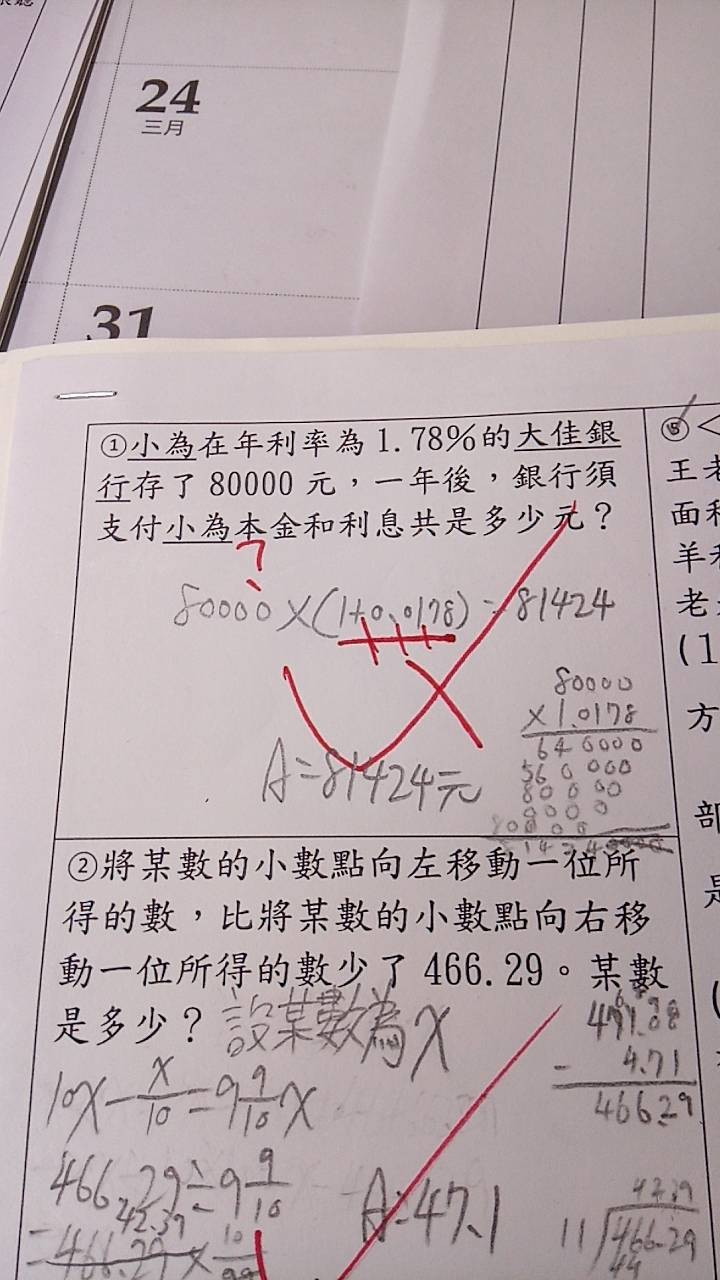 24
三月
31
①小為在年利率為1.78%的大佳銀
行存了80000元，一年後，銀行須
支付小為本金和利息共是多少元？
?
80000×(1+0.0178)=81424
80000
×1.0178
640000
560000
80000
0000
80000
A=81424元
②將某數的小數點向左移動一位所
得的數，比將某數的小數點向右移
動一位所得的數少了466.29。某數
是多少？
設某數為x
10x-x/10=9 9/10x
466.29÷9 9/10
42.39
=466.29×10/99
A=47.1
4.71
466.29
42.39
11
466.29
44
⑤<
王老
面積
羊
老
(1
方
部
是
(